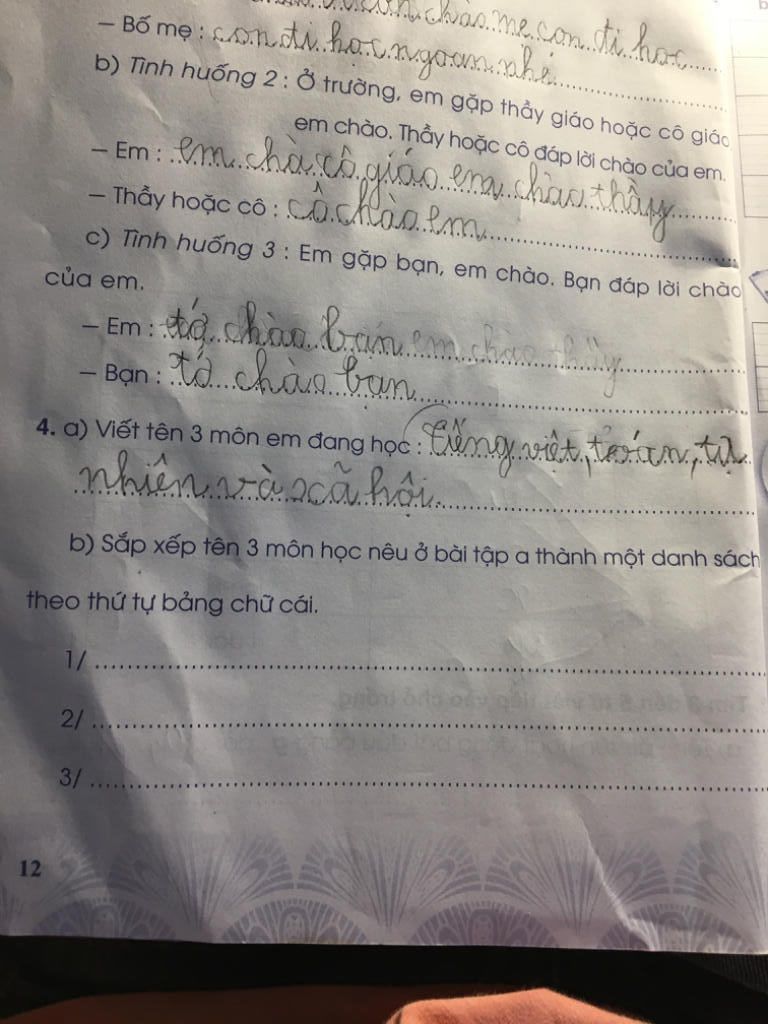 chào mẹ con đi học
– Bố mẹ : con đi học ngoan nhé
b) Tình huống 2 : Ở trường, em gặp thầy giáo hoặc cô giáo
em chào. Thầy hoặc cô đáp lời chào của em.
– Em : em chà cô giáo em chào thầy
– Thầy hoặc cô : cô chào em
c) Tình huống 3 : Em gặp bạn, em chào. Bạn đáp lời chào
của em.
– Em : tớ chào bạn em chào thầy
– Bạn : tớ chào bạn
4. a) Viết tên 3 môn em đang học : tiếng việt, toán, tự
nhiên và xã hội.
b) Sắp xếp tên 3 môn học nêu ở bài tập a thành một danh sách
theo thứ tự bảng chữ cái.
1/
2/
3/
12